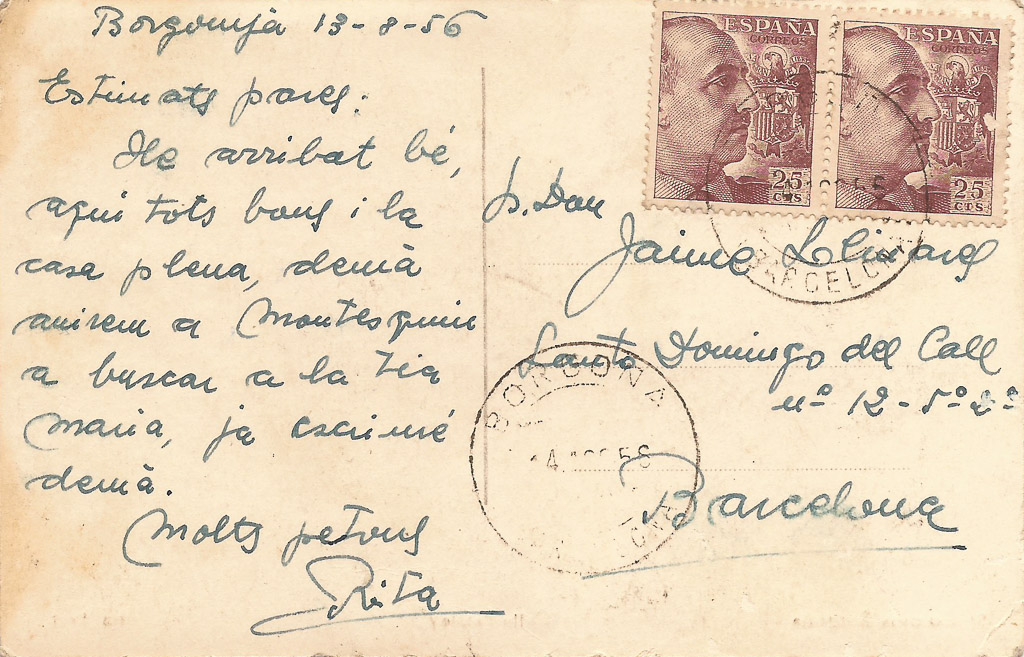 Borgonyà 13-8-56
Estimats pares:
He arribat bé,
aqui tots bons i la
casa plena, demà
anirem a Montesquiu
a buscar a la tia
Maria, ja escriuré
demà.
Molts petons
Rita
ESPAÑA
CORREOS
25
CTS
ESPAÑA
CORREOS
25
CTS
BARCELONA
D. Don
Jaime Llinares
Santo Domingo del Call
nº 12-5º 2ª
Barcelona
BORGOÑA